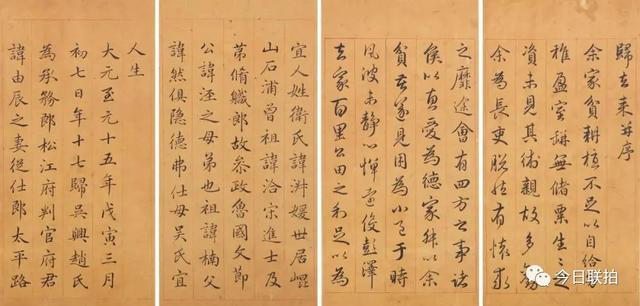 歸去来并序
余家貧耕植不足以自給
稚盈室缾無儲粟生生之
資未見其術親故多勸
余為長吏脱然有懷求
之靡途會有四方之事諸
侯以惠愛為德家叔以余
貧苦遂見用為小邑于時
風波未静心憚遠役彭澤
去家百里公田之利足以為
宜人姓衛氏諱淑媛世居崐
山石浦曾祖諱洽宋進士及
第脩軄郎故叅政魯國文節
公諱涇之母弟也祖諱楠父
諱然俱隐德弗仕母吳氏宜
人生
大元至元十五年戊寅三月
初七日年十七歸吳興趙氏
為承務郎松江府判官府君
諱由辰之妻從仕郎太平路
今日联拍